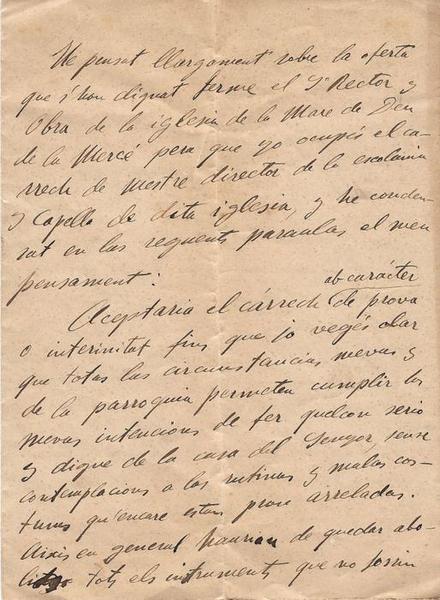 He pensat llargament sobre la oferta
que s'han dignat ferme el Sr Rector y
Obra de la iglesia de la Mare de Deu
de la Mercé pera que jo ocupés el ca-
rrech de mestre director de la escolania
y capella de dita iglesia, y he conden-
sat en las seguents paraulas el meu
pensament:
ab carácter
Aceptaria el cárrech de prova
o interinitat fins que jo vegés clar
que totas las circunstancias mevas y
de la parroquia permeten cumplir las
mevas intencions de fer quelcom serio
y digne de la casa del Senyor, sense
contemplacions a las rutinas y malas cos-
tums qu'encare estan prou arreladas.
Aixis en general haurian de quedar abo-
lits tots els instruments que no fossin